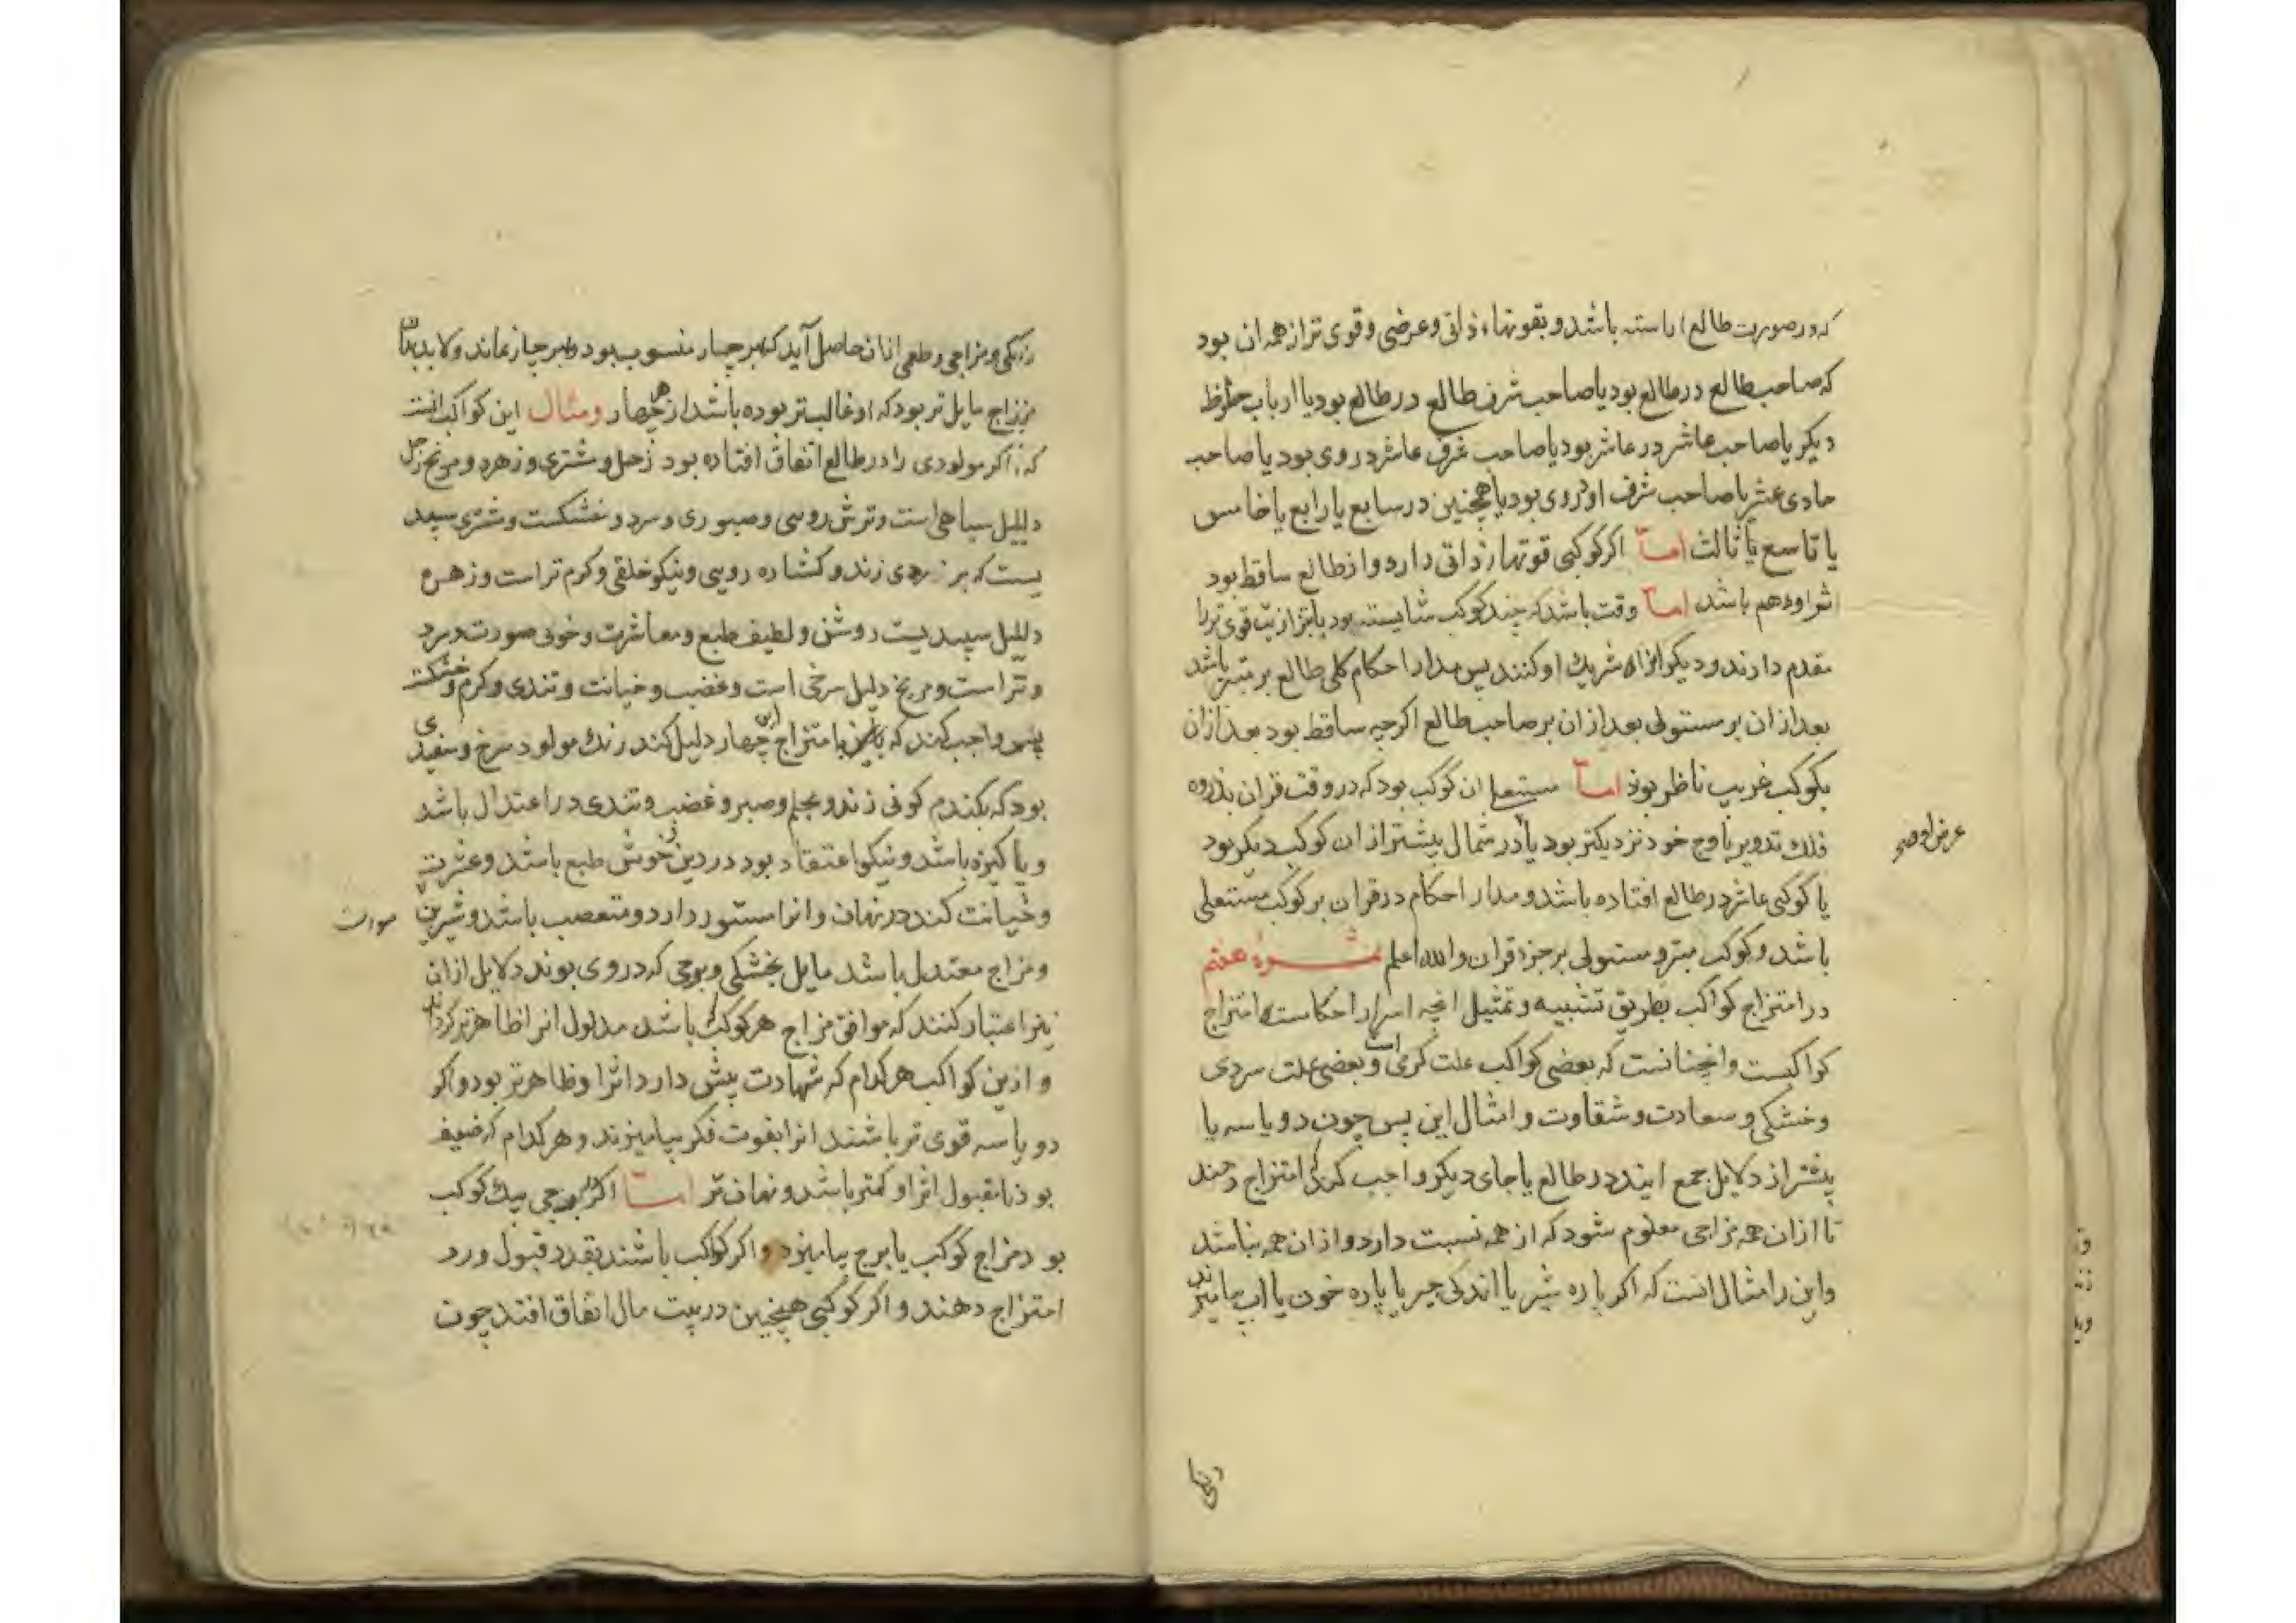 که در صورت طالع اراسته باشد و بقوتهاء ذاتی و عرضی و قوی تر از همه ان بود
که صاحب طالع در طالع بود یا صاحب شرف طالع در طالع بود یا ارباب حظوظ
دیکر یا صاحب عاشر در عاشر بود یا صاحب شرف عاشر در وی بود یا صاحب
حادی عشر یا صاحب شرف او در وی بود یا همچنین در سابع یا رابع یا خامس
یا تاسع یا ثالث اما اکر کوکبی قوتهار ذاتی دارد و از طالع ساقط بود
اثر او وهم باشد اما وقت باشد که چند کوکب شایسته بود
مقدم دارند و دیکر انرا شریك او کنند پس مدار احکام کلی طالع بر مبتز باشد
بعد از ان بر مستولی بعد از ان بر صاحب طالع اکر چه ساقط بود بعد از ان
بکوکب غریب ناظر بوذ اما مستعلی ان کوکب بود که در وقت قران بذروه
فلك تدویر یا وج خود نزدیکتر بود یا در شمال بیشتر از ان کوکب دیکر بود
عرض او
یا کوکبی عاشر در طالع افتاده باشد و مدار احکام در قران بر کوکب مستعلی
باشد و کوکب مبتز و مستولی بر جزء قران والله اعلم ثمره هفتم
در امتزاج کواکب بطریق تشبیه و تمثیل انچه اسرار احکامست امتزاج
کواکبست وانچنانست که بعضی کواکب علت کرمی است و بعضی علت سردی
و خشکی و سعادت و شقاوت و امثال این پس چون دو یا سه یا
بیشتر از دلایل جمع ایند در طالع یا جای دیکر واجب کردد امتزاج دهند
تا ازان همه مزاجی معلوم شود که از همه نسبت دارد و ازان همه نباشد
واین را مثال انست که اکر پاره شیر با اندکی جیر یا پاره خون یا اب بیامیزند
رنکی
رنکی و مزاجی و طعمی ازان حاصل آید که بهر چهار منسوب بود و بهر چهار نماند ولابد بدان
مزاج مایل تر بود که او غالب تر بوده باشد از هر چهار ومثال این کواکب انست
که اکر مولودی را در طالع اتفاق افتاده بود زحل و مشتری و زهره و مریخ زحل
دلیل سیاهی است و ترش رویی و صبوری و سرد و خشکست و مشتری سپید
یست که بر زردی زند و کشاده رویی و نیکو خلقی و کرم تر است و زهره
دلیل سپیدیست روشن و لطیف طبع و معاشرت و خوبی صورت و سرد
و تر است و مریخ دلیل سرخی است و غضب و خیانت و تندی و کرم و خشکست
پس واجب کند که با امتزاج این چهار دلیل کند رنك مولود سرخ و سفیدی
بود که بکندم کونی زند و بحلم و صبر و غضب و تندی در اعتدال باشد
و پاکیزه باشد و نیکو اعتقاد بود در دین و خوش طبع باشد و عشرت
و خیانت کند در نهان و انرا مستور دارد و متعصب باشد و شیرین
صورت
و مزاج معتدل باشد مایل بخشکی و برجی که در وی بوند دلایل ازان
نیز اعتبار کنند که موافق مزاج هر کوکب که باشد مدلول انرا ظاهرتر کرداند
و ازین کواکب هر کدام که شهادت بیش دارد اثر او ظاهرتر بود و اکر
دو یا سه قوی تر باشند انرا بقوت فکر بیامیزند و هر کدام که ضعیف
بود نامقبول اثر او کمتر باشد و نهان تر اما اکر در برجی یك کوکب
بود مزاج کوکب با برج بیامیزد و اکر کواکب باشند بقدر قبول و رد
امتزاج دهند و اکر کوکبی همچنین در بیت مال اتفاق افتد چون